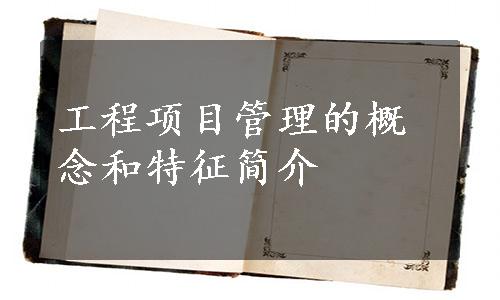 工程项目管理的概
念和特征简介